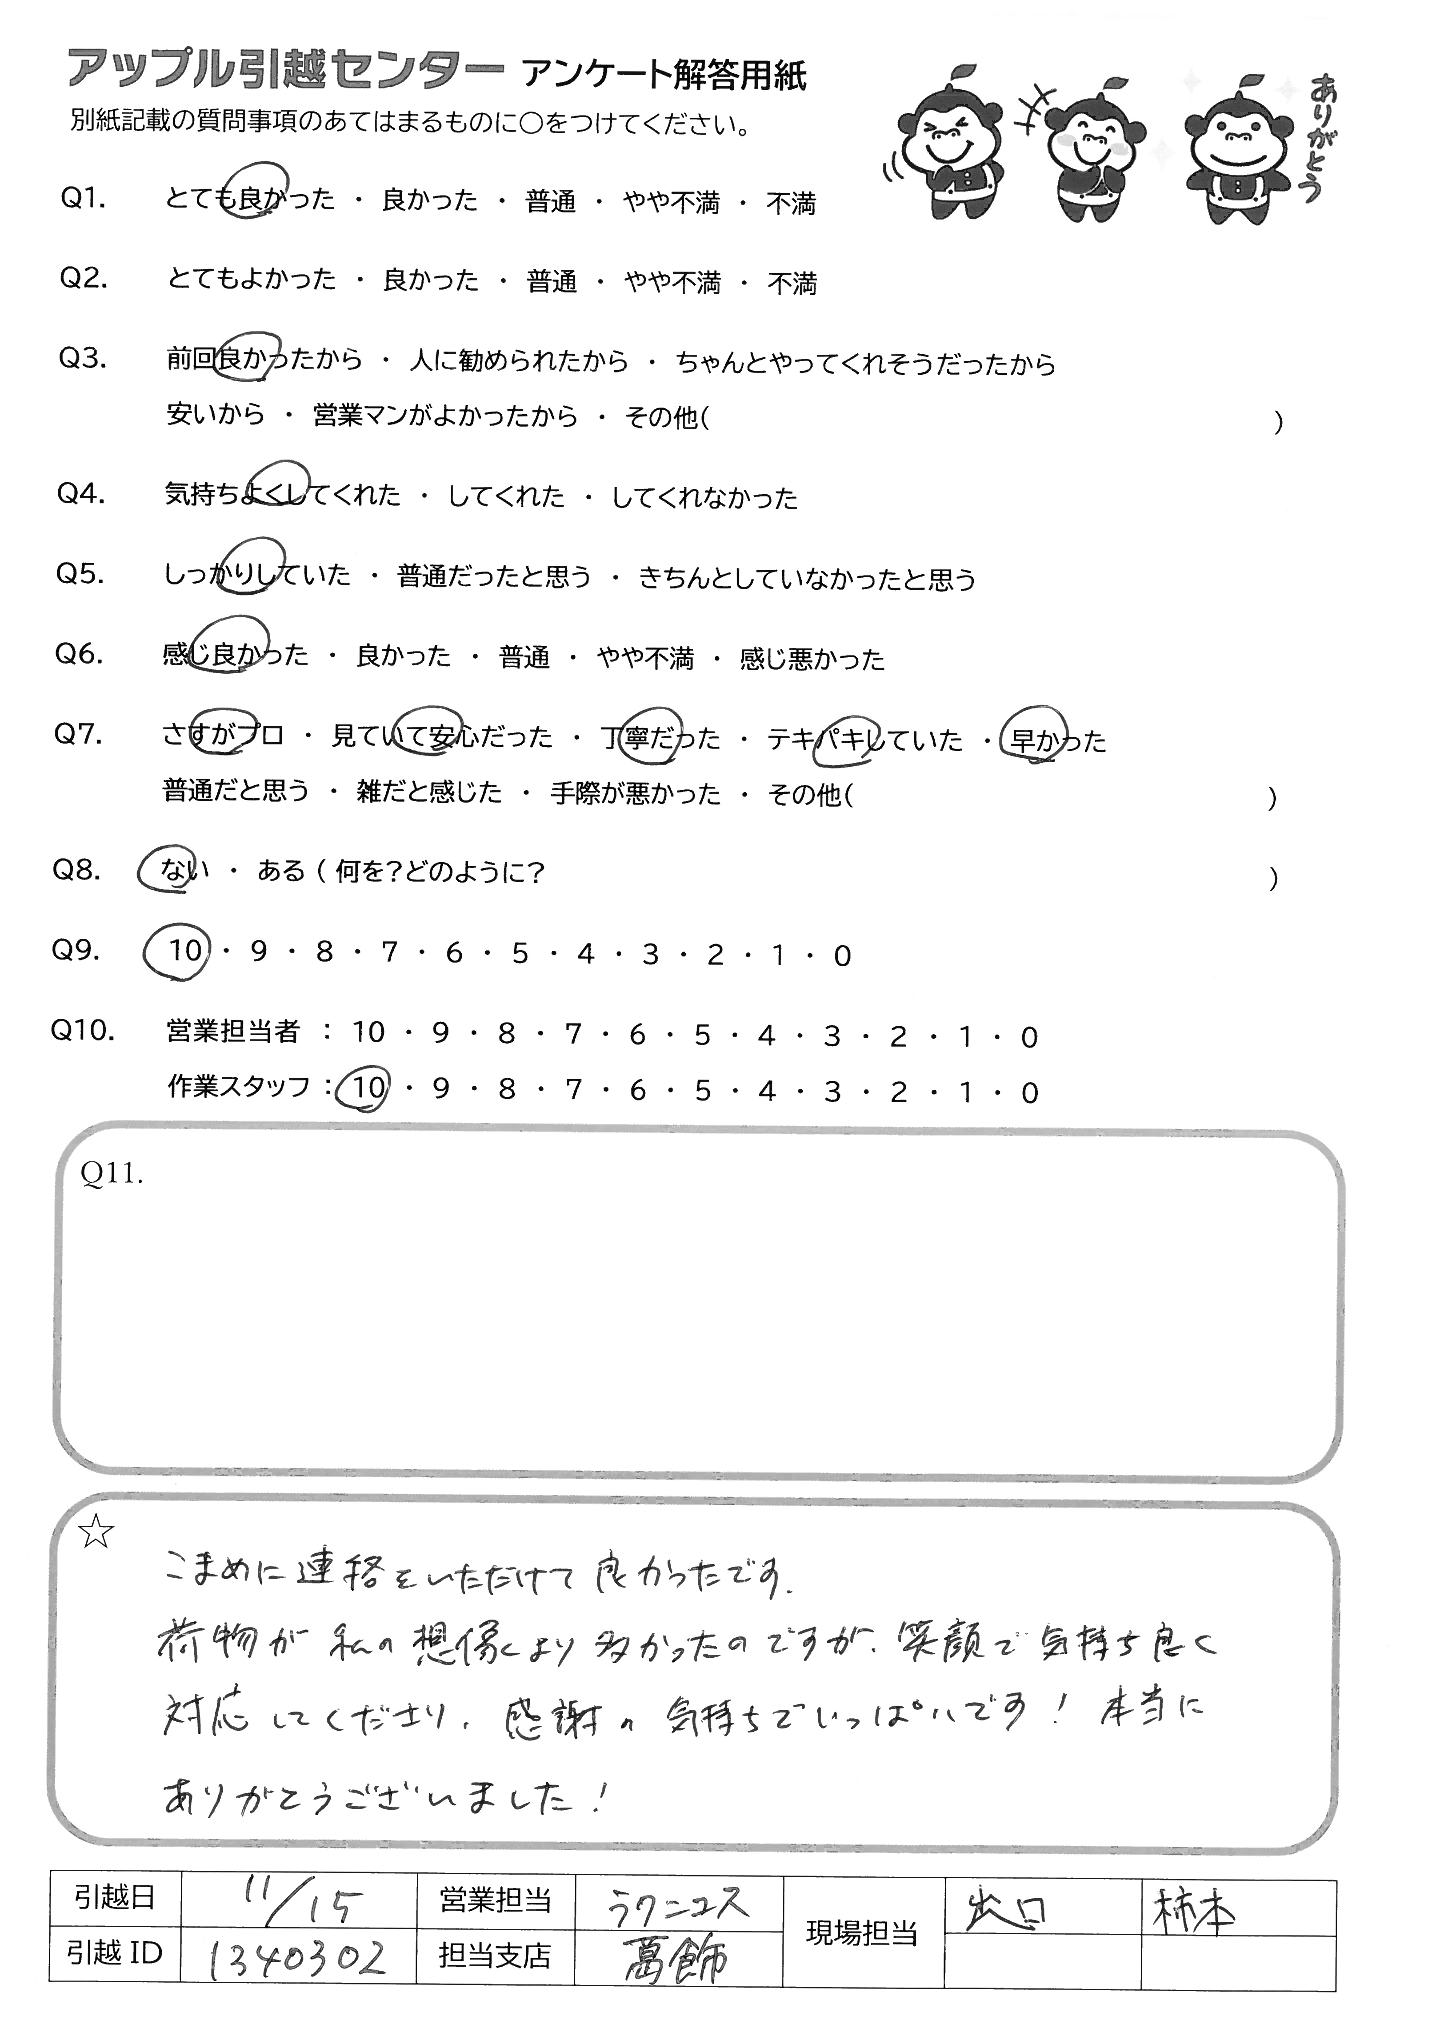 アップル引越センター アンケート解答用紙
別紙記載の質問事項のあてはまるものに○をつけてください。
ありがとう
Q1. とても良かった ・ 良かった ・ 普通 ・ やや不満 ・ 不満
Q2. とてもよかった ・ 良かった ・ 普通 ・ やや不満 ・ 不満
Q3. 前回良かったから ・ 人に勧められたから ・ ちゃんとやってくれそうだったから
安いから ・ 営業マンがよかったから ・ その他( )
Q4. 気持ちよくしてくれた ・ してくれた ・ してくれなかった
Q5. しっかりしていた ・ 普通だったと思う ・ きちんとしていなかったと思う
Q6. 感じ良かった ・ 良かった ・ 普通 ・ やや不満 ・ 感じ悪かった
Q7. さすがプロ ・ 見ていて安心だった ・ 丁寧だった ・ テキパキしていた ・ 早かった
普通だと思う ・ 雑だと感じた ・ 手際が悪かった ・ その他( )
Q8. ない ・ ある ( 何を?どのように? )
Q9. 10 ・ 9 ・ 8 ・ 7 ・ 6 ・ 5 ・ 4 ・ 3 ・ 2 ・ 1 ・ 0
Q10. 営業担当者 : 10 ・ 9 ・ 8 ・ 7 ・ 6 ・ 5 ・ 4 ・ 3 ・ 2 ・ 1 ・ 0
作業スタッフ : 10 ・ 9 ・ 8 ・ 7 ・ 6 ・ 5 ・ 4 ・ 3 ・ 2 ・ 1 ・ 0
Q11.
☆
こまめに連絡をいただけて良かったです.
荷物が私の想像より多かったのですが、笑顔で気持ち良く
対応してくださり、感謝の気持ちでいっぱいです! 本当に
ありがとうございました!
引越日 11/15 営業担当 ラクニコス 現場担当 出口 柿本
引越 ID 1340302 担当支店 葛飾